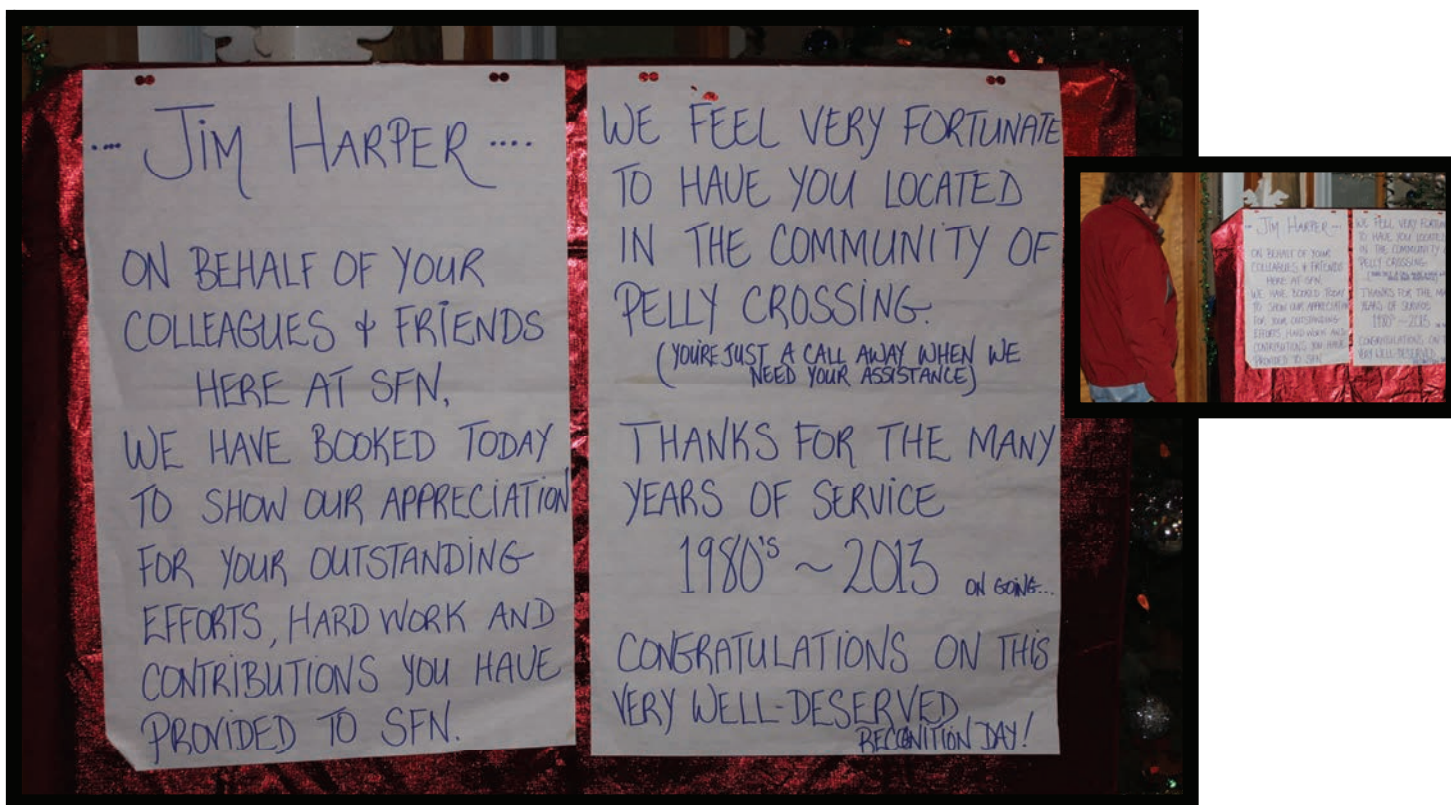 .... JIM HARPER ....
ON BEHALF OF YOUR
COLLEAGUES & FRIENDS
HERE AT SFN,
WE HAVE BOOKED TODAY
TO SHOW OUR APPRECIATION
FOR YOUR OUTSTANDING
EFFORTS, HARD WORK AND
CONTRIBUTIONS YOU HAVE
PROVIDED TO SFN.
WE FEEL VERY FORTUNATE
TO HAVE YOU LOCATED
IN THE COMMUNITY OF
PELLY CROSSING.
(YOU'RE JUST A CALL AWAY WHEN WE
NEED YOUR ASSISTANCE)
THANKS FOR THE MANY
YEARS OF SERVICE
1980'S ~ 2015 ON GOING...
CONGRATULATIONS ON THIS
VERY WELL-DESERVED
RECONITION DAY!
JIM HARPER
ON BEHALF OF YOUR
COLLEAGUES & FRIENDS
HERE AT SFN
WE HAVE BOOKED TODAY
TO SHOW OUR APPRECIATION
FOR YOUR OUTSTANDING
EFFORTS, HARD WORK AND
CONTRIBUTIONS YOU HAVE
PROVIDED TO SFN
WE FEEL VERY FORTUN
TO HAVE YOU LOCATED
IN THE COMMUNITY
PELLY CROSSING
THANKS FOR THE MA
YEARS OF SERVICE
1980'S ~ 2015
CONGRATULATIONS ON
VERY WELL-DESERVED